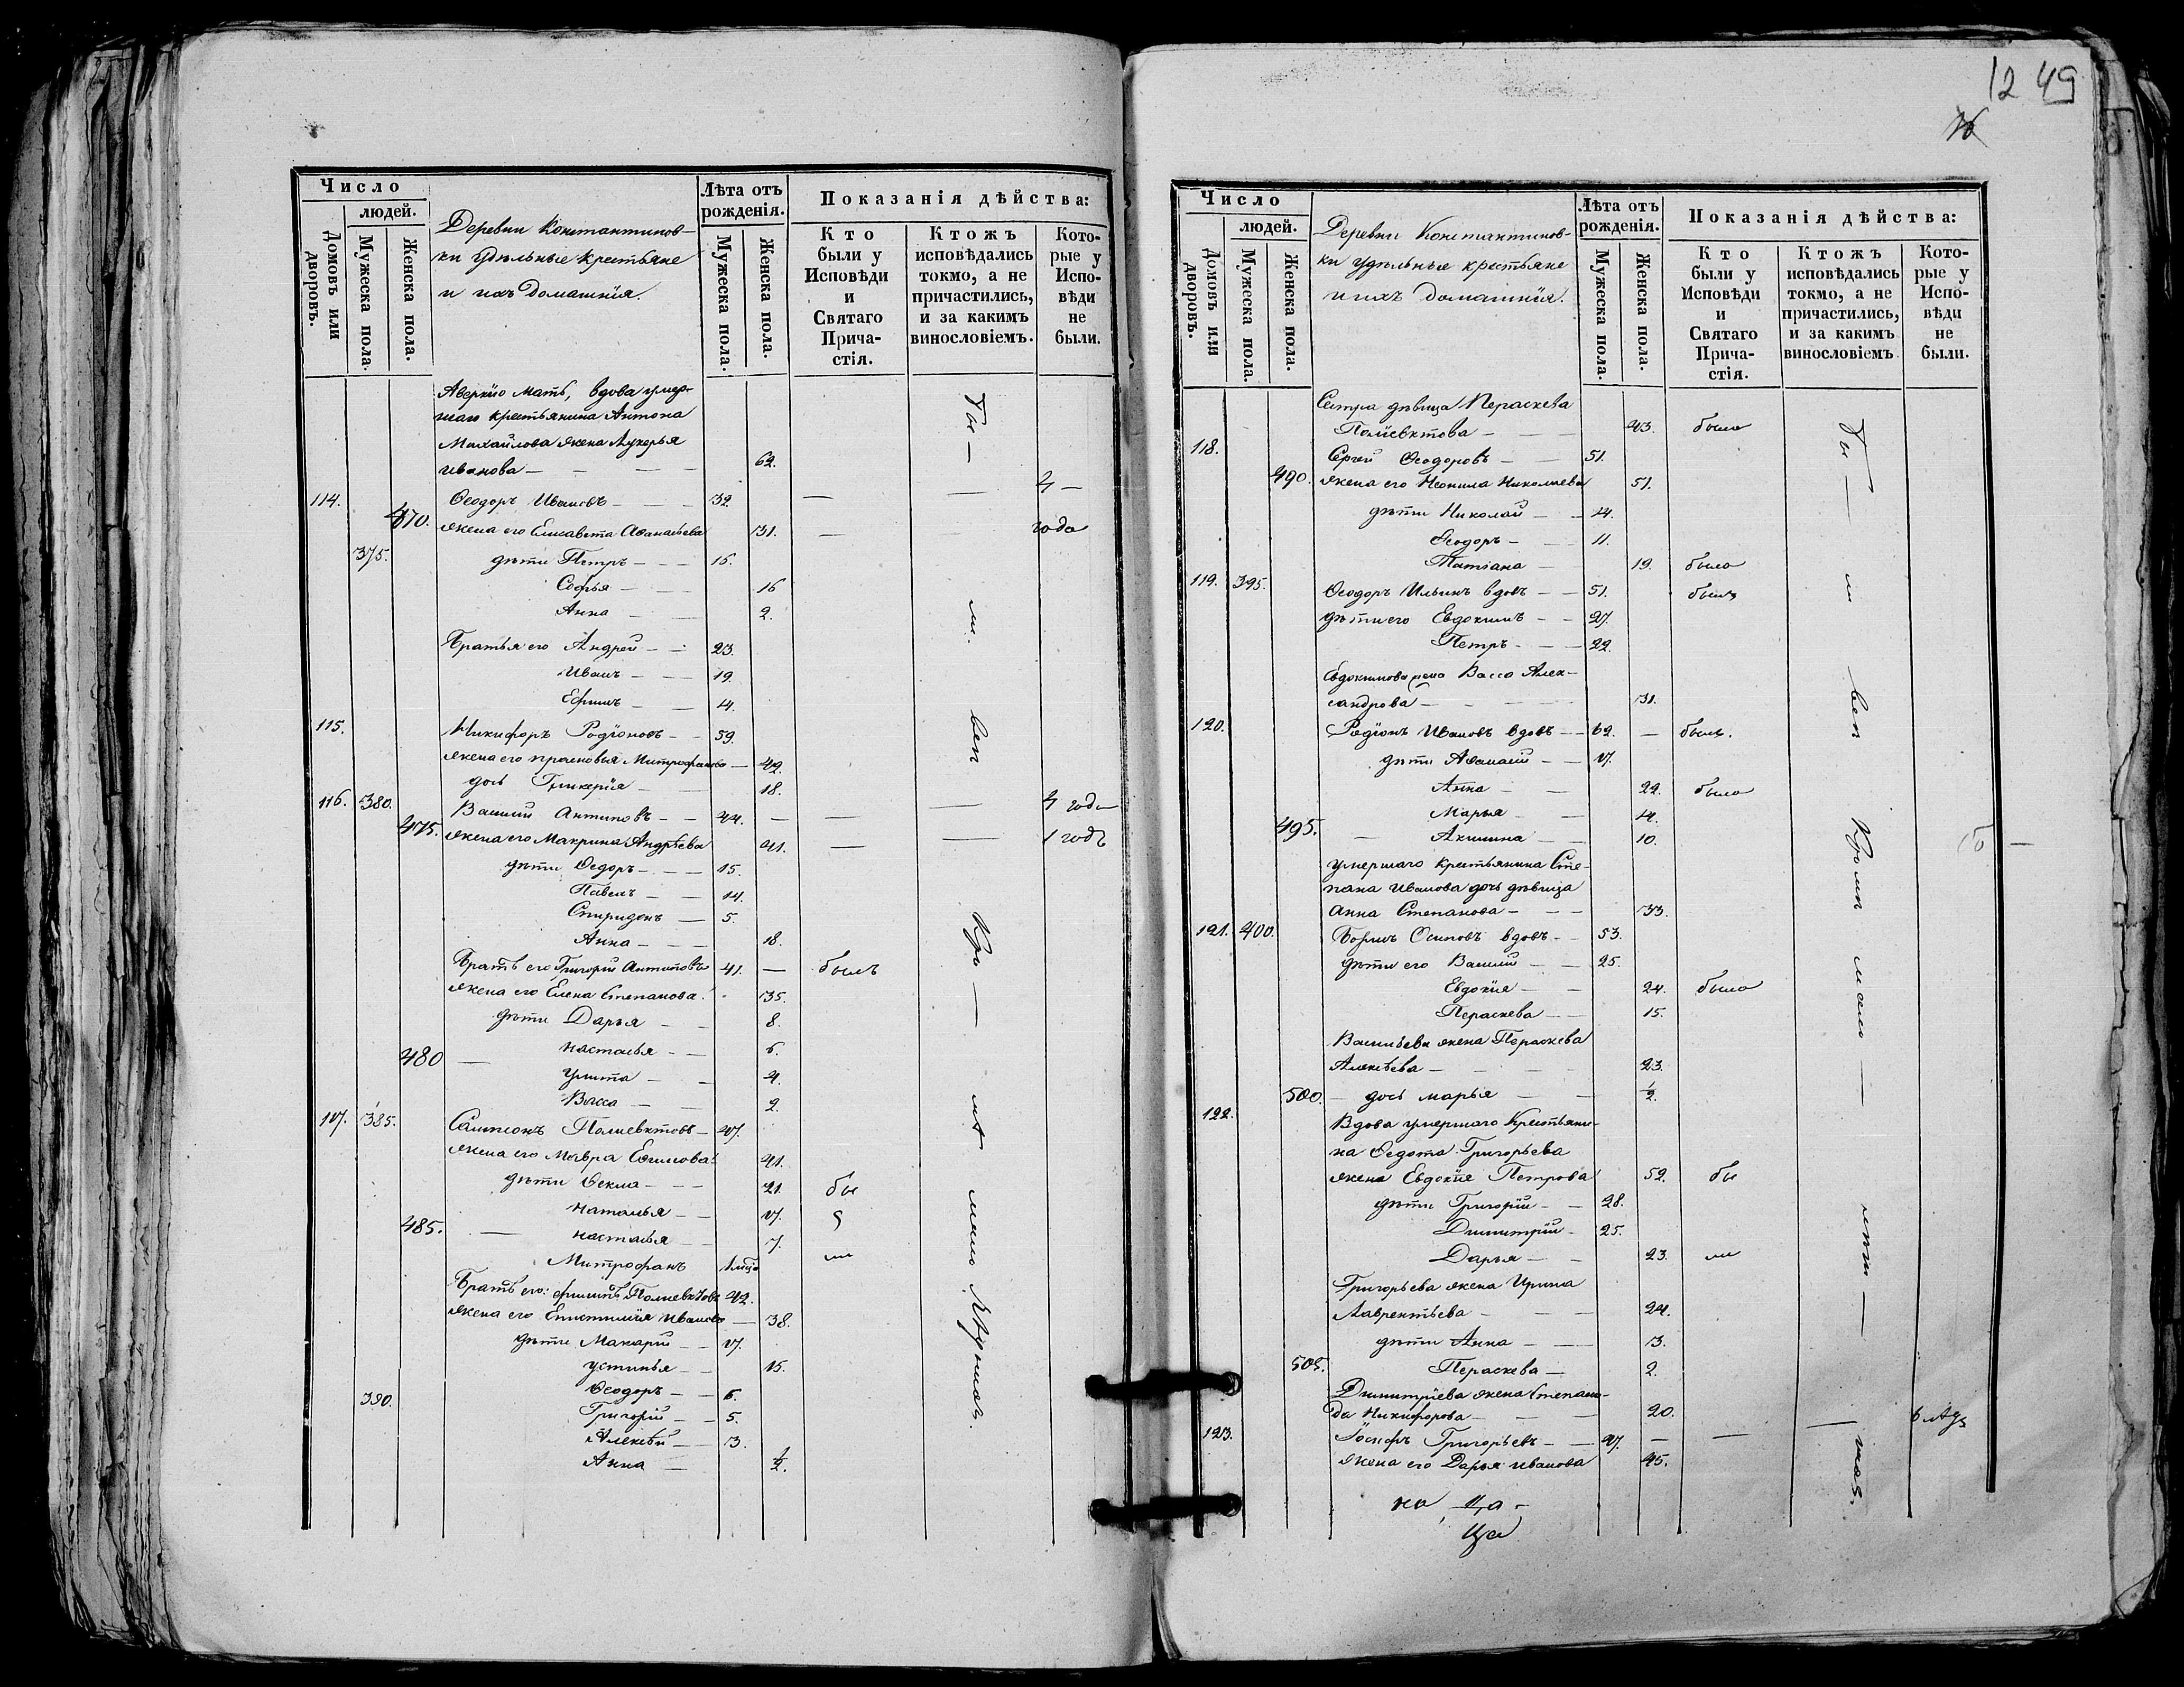 12 49
Число
людей.
Домовъ или дворовъ.
Мужеска пола.
Женска пола.
Деревни Константинов-
ки удѣльные крестьяне
и ихъ домашнія.
Лѣта отъ рожденія.
Мужеска пола.
Женска пола.
Показанія дѣйства:
Кто были у Исповѣди и Святаго Прича-стія.
Ктожъ исповѣдались токмо, а не причастились, и за какимъ винословіемъ.
Кото-рые у Испо-вѣди не были.
Аверкію мать, вдова умер-
шаго крестьянина Антона
Михайлова жена Лукерья
Иванова — 62.
114. Ѳеодоръ Ивановъ — 39. — — 4 —
470. жена его Елисавета Аѳанасьева 31. — года
375. дѣти Петръ — 15.
Софья — 16
Анна — 2.
Братья его Андрей — 23.
Иванъ — 19.
Ефимъ — 14.
115. Никифоръ Родіоновъ — 59.
жена его Прасковья Митрофанова — 49.
дочь Гликерія — 18.
116. 380. Василій Антиповъ — 44. — — — 4 года
475. жена его Макрина Андрѣева 41. — — 1 годъ
дѣти Ѳедоръ — 15.
Павелъ — 14.
Спиридонъ — 5.
Анна — 18.
Братъ его Григорій Антиповъ 41. — былъ
жена его Елена Степанова 35.
дѣти Дарья — 8.
Настасья — 6.
480 — Улита — 4.
Васса — 2.
117. 385. Сампсонъ Полиевктовъ — 47.
жена его Мавра Ефимова 41.
дѣти Ѳекла — 21. бы
Наталья — 17.
485. — Настасья — 7. ли
Митрофанъ
Братъ его Филипъ Полиевктовъ 42.
жена его Епистимія Иванова — 38.
дѣти Макарій — 17.
Устинья — 15.
Ѳеодоръ — 6.
390. Григорій — 5.
Алексѣй — 3.
Анна — ½.
Число
людей.
Домовъ или дворовъ.
Мужеска пола.
Женска пола.
Деревни Константинов-
ки удѣльные крестьяне
и ихъ домашнія.
Лѣта отъ рожденія.
Мужеска пола.
Женска пола.
Показанія дѣйства:
Кто были у Исповѣди и Святаго Прича-стія.
Ктожъ исповѣдались токмо, а не причастились, и за какимъ винословіемъ.
Кото-рые у Испо-вѣди не были.
Сестра дѣвица Параскева
Поліевктова — 43. была
118. Сергій Ѳеодоровъ — 51.
490. жена его Неонила Николаева 51.
дѣти Николай — 14.
Ѳеодоръ — 11.
Татіана — 19. была
119. 395. Ѳеодоръ Ильинъ вдовъ — 51. былъ
дѣти его Евдокимъ — 27.
Петръ — 22.
Евдокимова жена Васса Алек-
сандрова — 31.
120. Родіонъ Ивановъ вдовъ — 62. — былъ.
дѣти Аѳанасій — 17.
Анна — 22. была
Марья — 14.
495. — Акилина — 10.
умершаго крестьянина Сте-
пана Иванова дочь дѣвица
Анна Степанова — 33.
121. 400. Борисъ Осиповъ вдовъ — 53.
дѣти его Василій — 25.
Евдокія — 24. была
Параскева — 15.
Васильева жена Параскева
Алексѣева — 23.
500. — дочь Марья — ½.
122. Вдова умершаго крестьяни-
на Ѳедота Григорьева
жена Евдокія Петрова 52. бы
дѣти Григорій — 28.
Димитрій — 25.
Дарья — 23. ли
Григорьева жена Ирина
Лаврентьева — 24.
дѣти Анна — 3.
505. Параскева — 2.
Димитріева жена Степани-
да Никифорова — 20.
123. Іосифъ Григорьевъ — 47. — — — 6 лѣтъ
жена его Дарья Иванова 45.